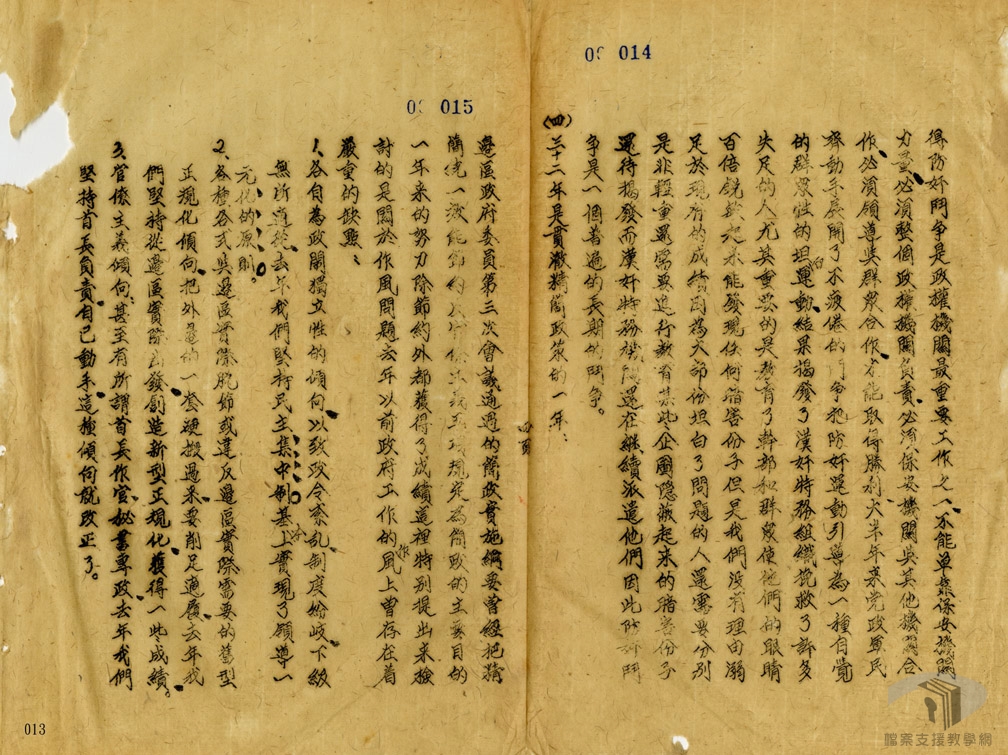 00 014
得防奸鬥爭是政權機關最重要工作之一、不能单靠保安機關
力量、必須整個政權機關負責、必須保安機關與其他機關合
作、必須領導與群眾合作、才能取得勝利、大半年來党政軍民
齊動手展開了不疲倦的鬥爭把防奸運動引導為一種自覺
的群眾性的坦白運動、結果揭發了漢奸特務組織挽救了許多
失足的人尤其重要的是教育了幹部和群眾使他們的眼睛
百倍銳敏起來能發現任何暗害份子但是我們沒有理由溺
足於現有的成績因為大部份坦白了問題的人還需要分别
是非輕重還需要進行教育某些企圖隱蔽起來的暗害份子
還待揭發而漢奸特務機關還在继續派遣他們因此防奸鬥
爭是一個普遍的長期的鬥爭。
(四)三十二年是貫澈精简政策的一年：
00 015
邊區政府委員第三次會議通過的簡政實施綱要曾經把精
簡統一效能節約反對官僚主義五項規定為簡政的主要目的、
一年来的努力除節約外都獲得了成績這裡特别提出来檢
討的是関於作風問題去年以前政府工作的作風上曾存在着
嚴重的缺點：
1、各自為政闹獨立性的傾向、以致政令紊乱制度紛岐、下級
無所適從、去年我們堅持民主集中制基本上實現了領導一
元化的原則。
2、各種各式與邊區實際脫節或違反邊區實際需要的舊型
正規化傾向、把外邊的一套硬搬過来、要削足適履、去年我
們堅持從邊區實際出發創造新型正規化、獲得一些成績。
3、官僚主義傾向、甚至有所謂首長作官、秘書專政、去年我們
堅持首長負責、自己動手、這種傾向就改正了。
013
檔案支援教學網